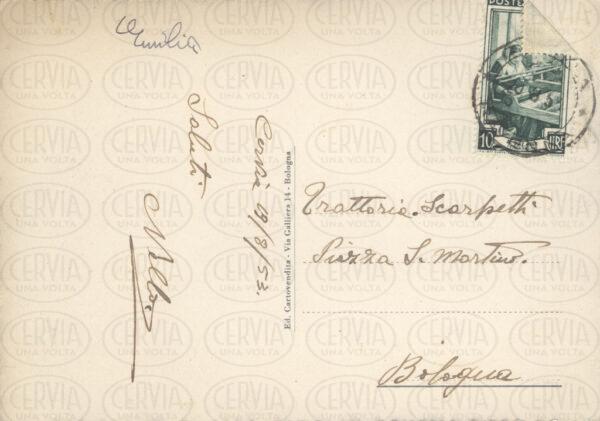 Emilia
Saluti
Cervia 18/8/53.
Ed. Cartovendita - Via Galliera 14 - Bologna
Trattoria Scarpetti
Piazza S. Martino.
Bologna
POSTE
10 LIRE
CERVIA
UNA VOLTA